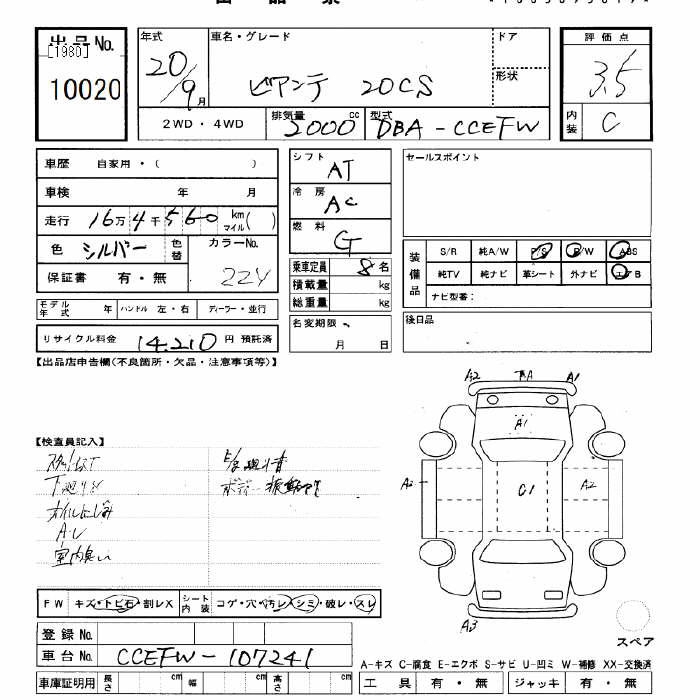 出品No.
[1980]
10020
年式
20/9月
車名・グレード
ビアンテ 20CS
ドア
形状
評価点
3.5
内装 C
2WD・4WD
排気量 2000 cc
型式 DBA-CCEFW
車歴 自家用・( )
車検 年 月
走行 16万4千560 km マイル( )
色 シルバー 色替 カラーNo. 22Y
保証書 有・無
シフト AT
冷房 AC
燃料 G
乗車定員 8名
積載量 kg
総重量 kg
名変期限
月 日
セールスポイント
装備品
S/R 純A/W P/S P/W ABS
純TV 純ナビ 革シート 外ナビ エアB
ナビ型番:
後日品
モデル年式 年 ハンドル 左・右 ディーラー・並行
リサイクル料金 14,210 円 預託済
【出品店申告欄(不良箇所・欠品・注意事項等)】
【検査員記入】
下廻りサビ
オイルにじみ
室内臭い
A2 A1
A1
A2 C1 A2
A3
スペア
FW キズ・トビ石・割レX シート内装 コゲ・穴・汚レ・シミ・破レ・スレ
登録No.
車台No. CCEFW-107241
車庫証明用 長さ cm 幅 cm 高さ cm
A-キズ C-腐食 E-エクボ S-サビ U-凹ミ W-補修 XX-交換済
工具 有・無 ジャッキ 有・無